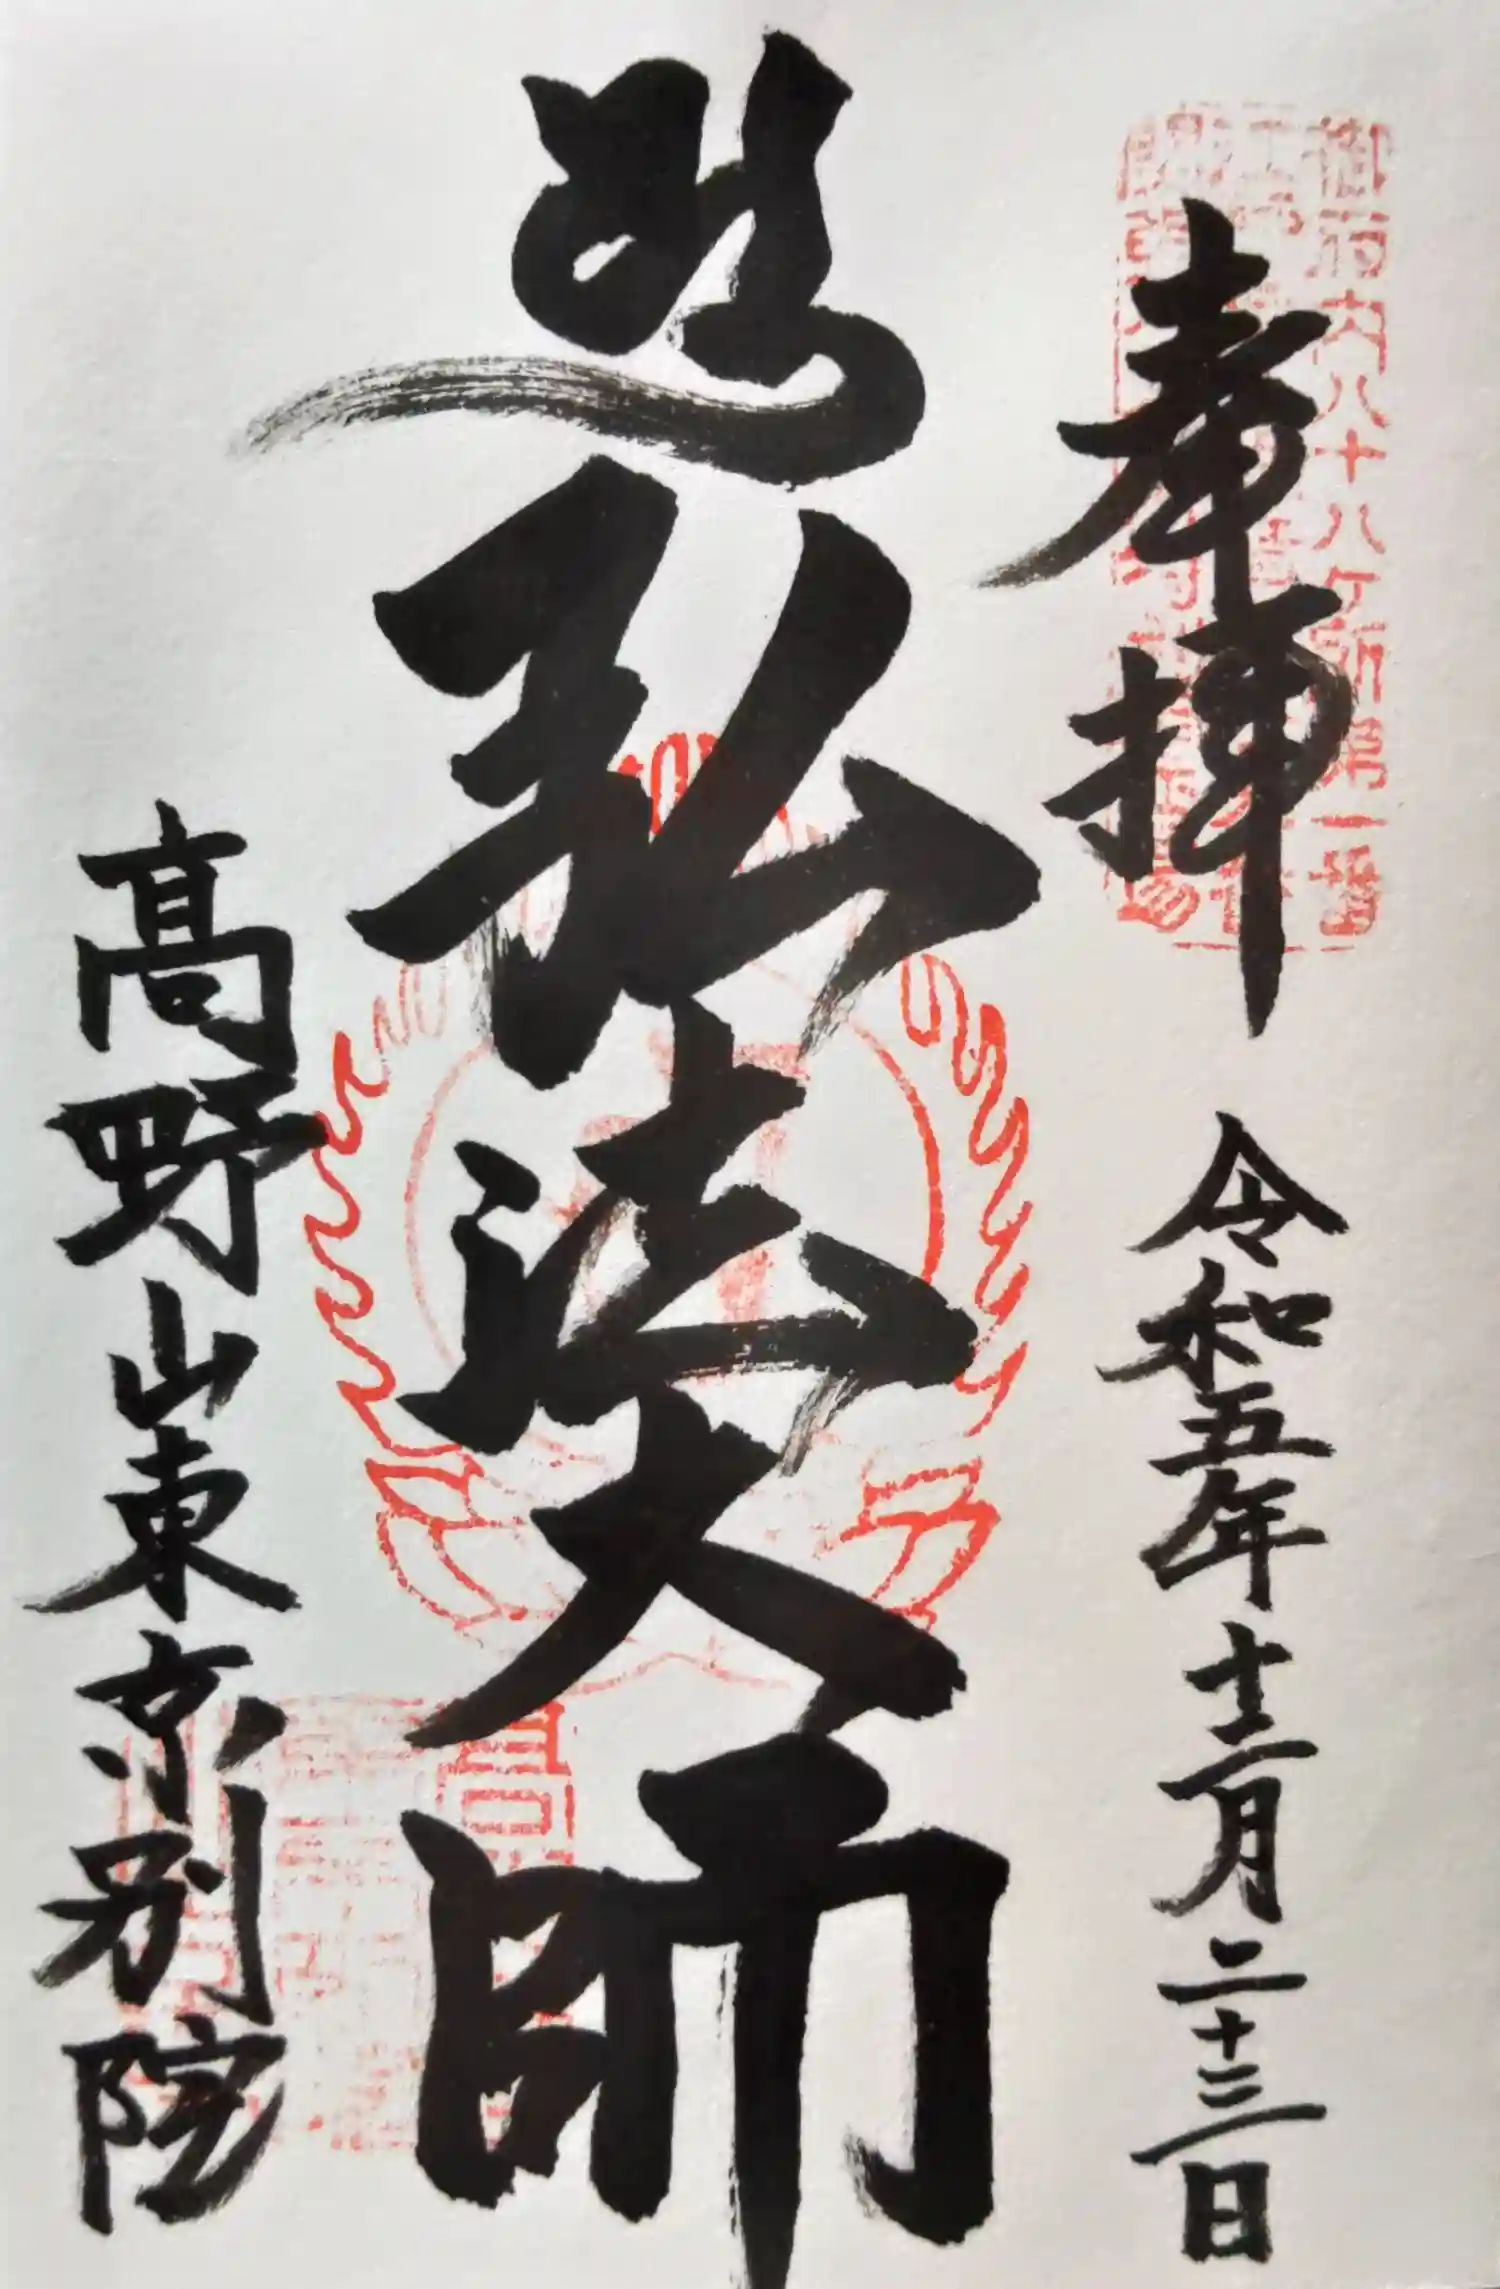 御府内八十八ケ所第一番
奉拝
令和五年十二月二十三日
弘法大師
高野山東京別院